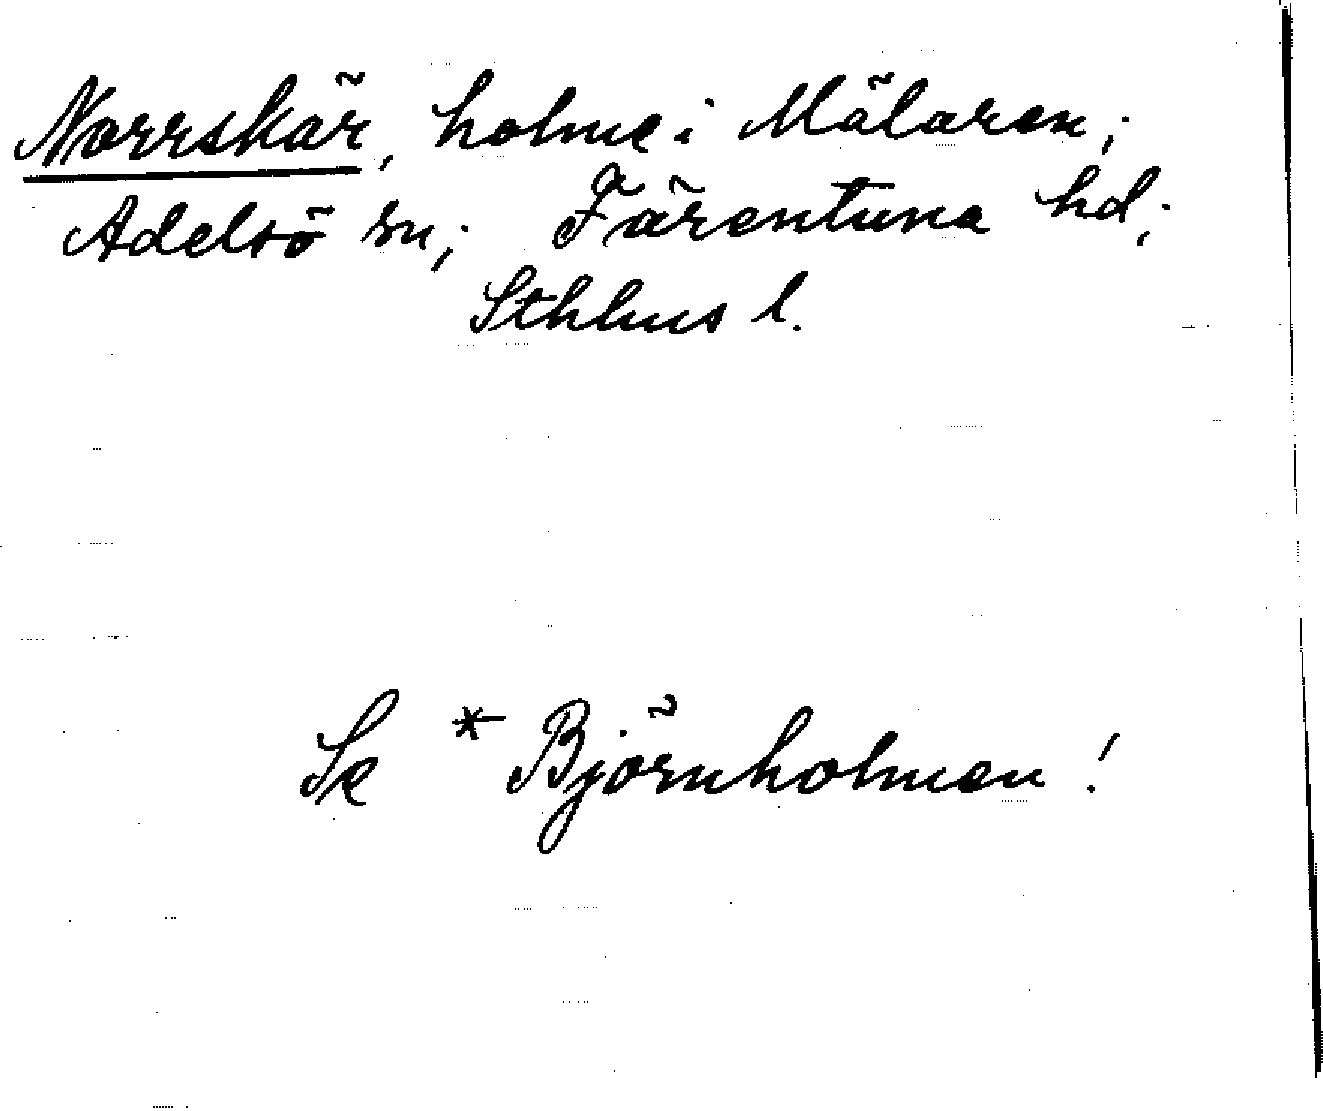 Norrskär, holme i Mälaren;
Adelsö sn; Färentuna hd;
Sthlms l.
Se *Björnholmen!